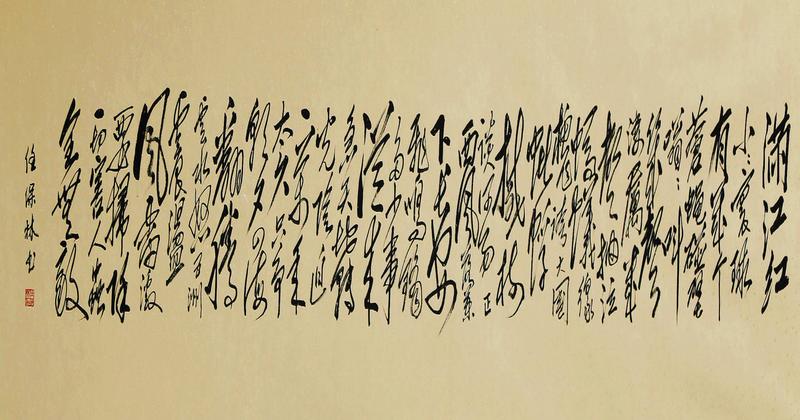 满江红
小小寰球
有几个
苍蝇碰壁
嗡嗡叫
几声
凄厉几
声抽泣
蚂蚁缘
槐夸大国
蚍蜉
撼树
谈何易正
西风落叶
下长安
飞鸣镝
多少事
从来
急天地转
光阴迫
一万年
太久只争
朝夕四海
翻腾
云水怒五洲
震荡
风雷激
要扫除
一切害人虫
全无敌
任保林书